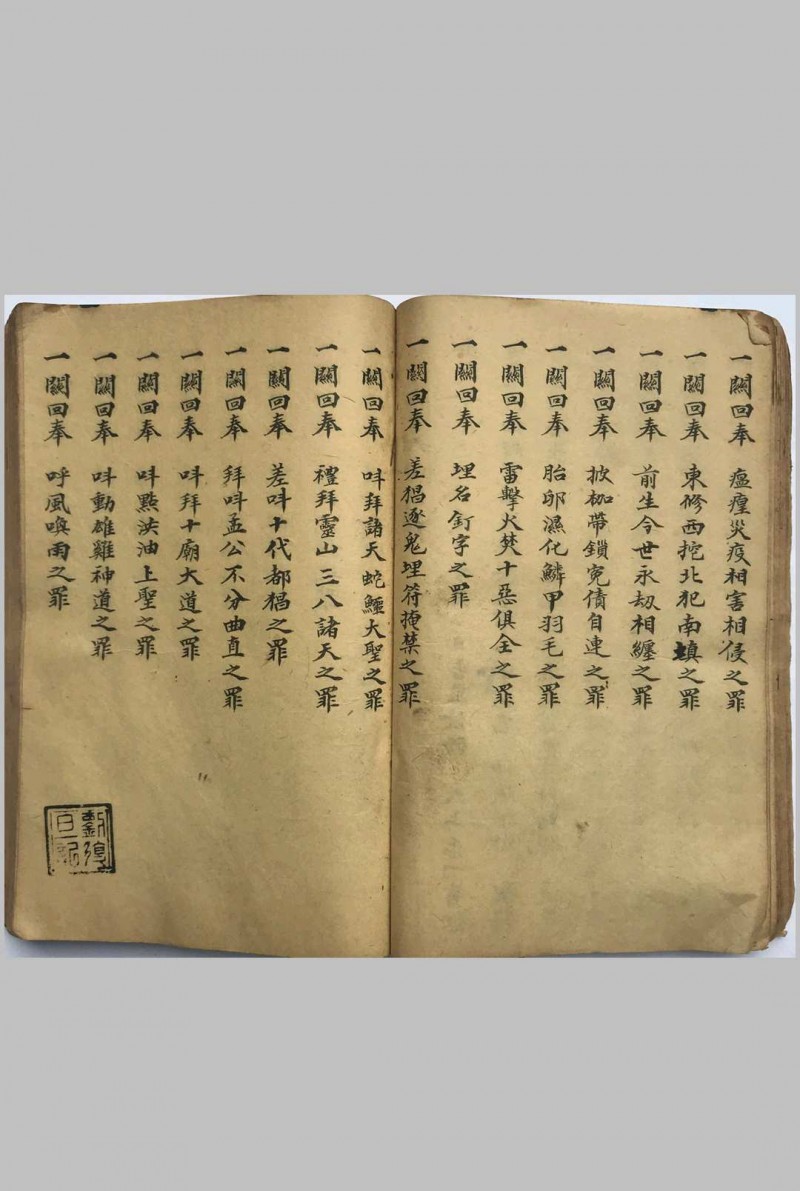 一關回奉 瘟瘟災疫相害相侵之罪
一關回奉 東修西挖北犯南填之罪
一關回奉 前生今世永劫相纏之罪
一關回奉 披枷帶鎖冤債自連之罪
一關回奉 胎卵濕化鱗甲羽毛之罪
一關回奉 雷擊火焚十惡俱全之罪
一關回奉 埋名釘字之罪
一關回奉 差猖逐鬼埋符掩禁之罪
一關回奉 呌拜諸天蛇鱷大聖之罪
一關回奉 禮拜靈山三八諸天之罪
一關回奉 差呌十代都猖之罪
一關回奉 拜呌孟公不分曲直之罪
一關回奉 呌拜十廟大道之罪
一關回奉 呌點洪油上聖之罪
一關回奉 呌動雄雞神道之罪
一關回奉 呼風喚雨之罪